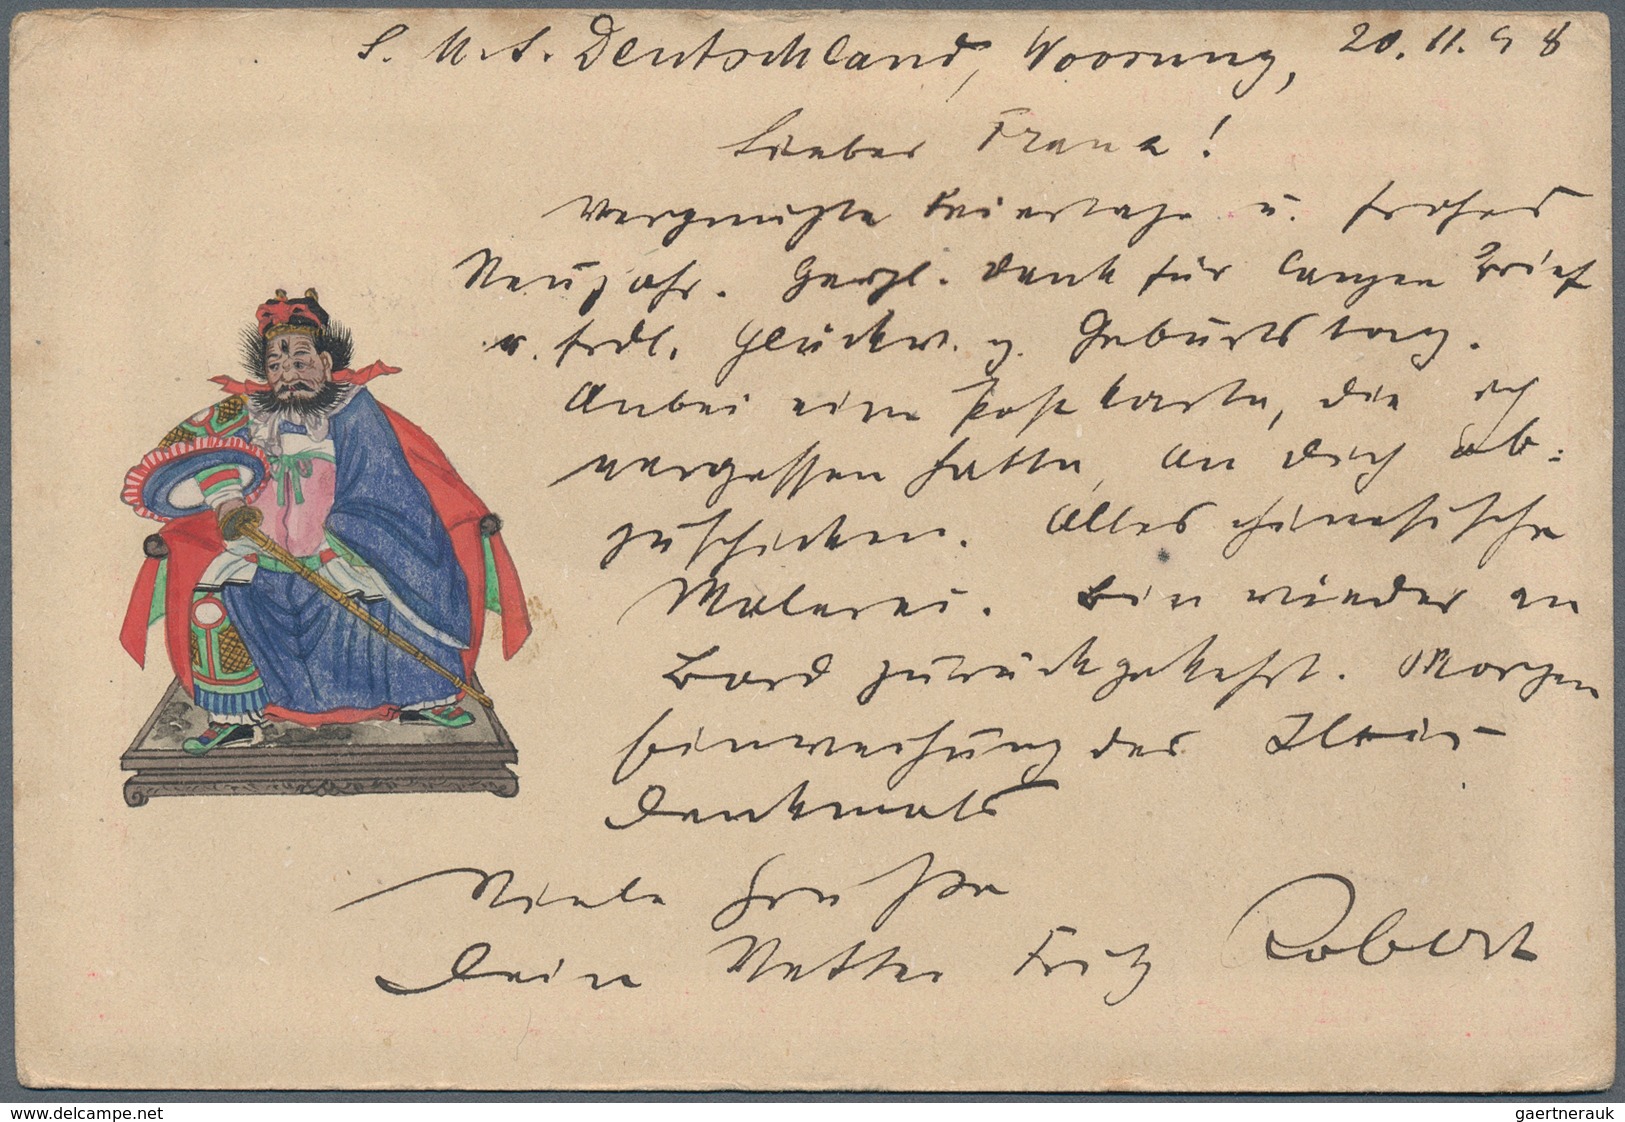 S. M. S. Deutschland, Woosung, 20. 11. 98
Lieber Franz!
Vergnügte Feiertage u. frohes
Neujahr. Herzl. Dank für langen Brief
u. frdl. Glückw. z. Geburtstag.
Anbei eine Postkarte, die ich
vergessen hatte, an Dich ab=
zuschicken. Alles chinesische
Malerei. Bin wieder an
Bord zurückgekehrt. Morgen
Einweihung des Iltis-
Denkmals
Viele Grüße
Dein Vetter Fritz Robert
www.delcampe.net
gaertnerauk